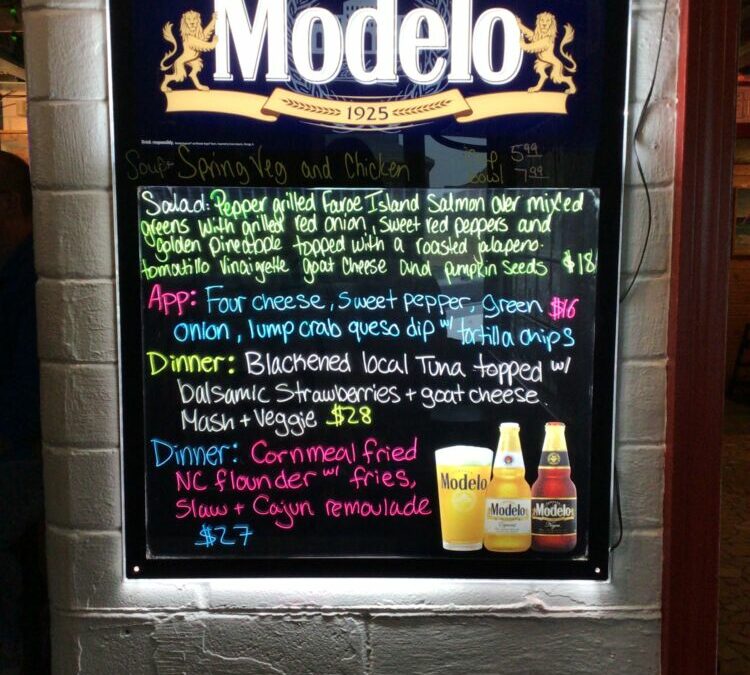 Modelo
1925
Drink responsibly.
Soup- Spring Veg and Chicken 5.99
Bowl 7.99
Salad: Pepper grilled Faroe Island Salmon over mixed
greens with grilled red onion, sweet red peppers and
golden pineapple topped with a roasted jalapeno-
tomatillo vinaigrette goat cheese and pumpkin seeds $18
App: Four cheese, sweet pepper, green $16
onion, lump crab queso dip w/ tortilla chips
Dinner: Blackened local Tuna topped w/
balsamic Strawberries + goat cheese
Mash + Veggie $28
Dinner: Cornmeal fried
NC flounder w/ fries,
Slaw + Cajun remoulade
$27
Modelo
Modelo
Especial
Modelo
Negra